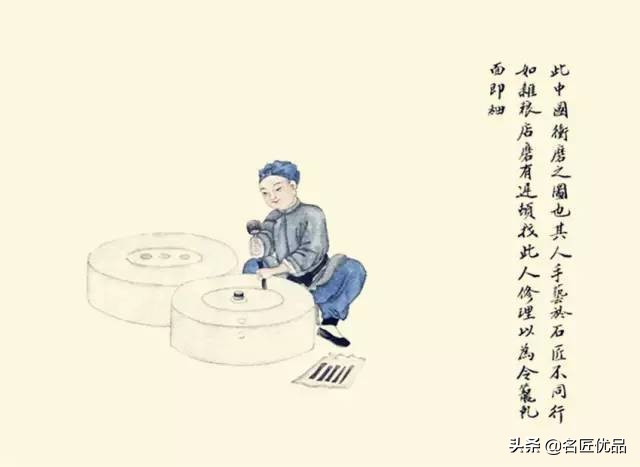 此中國衝磨之圖也其人手藝於石匠不同行
如雜粮店磨有遲頓找此人修理以為令籠軋
面即細
头条 @名匠优品